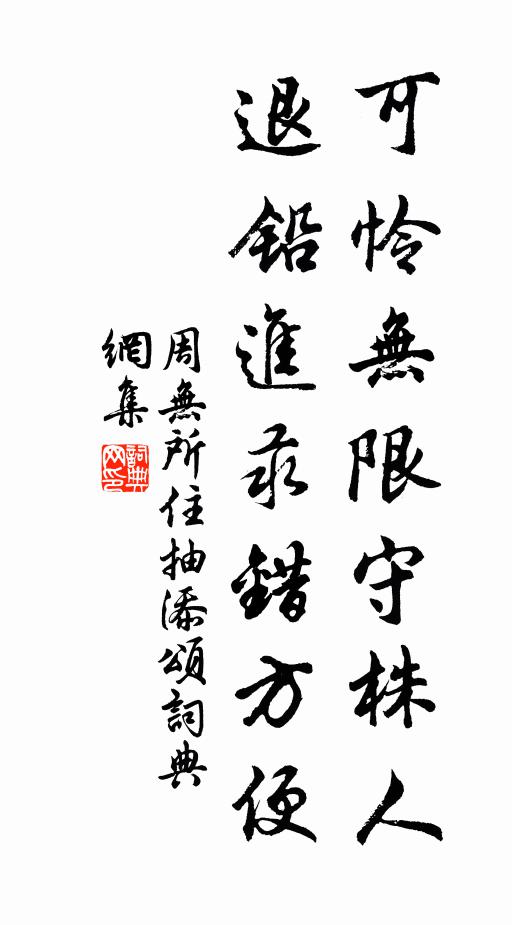 可怜無限守株人
退鉛進汞錯方便
周無所住抽添頌詞典
網集
詞典
网印